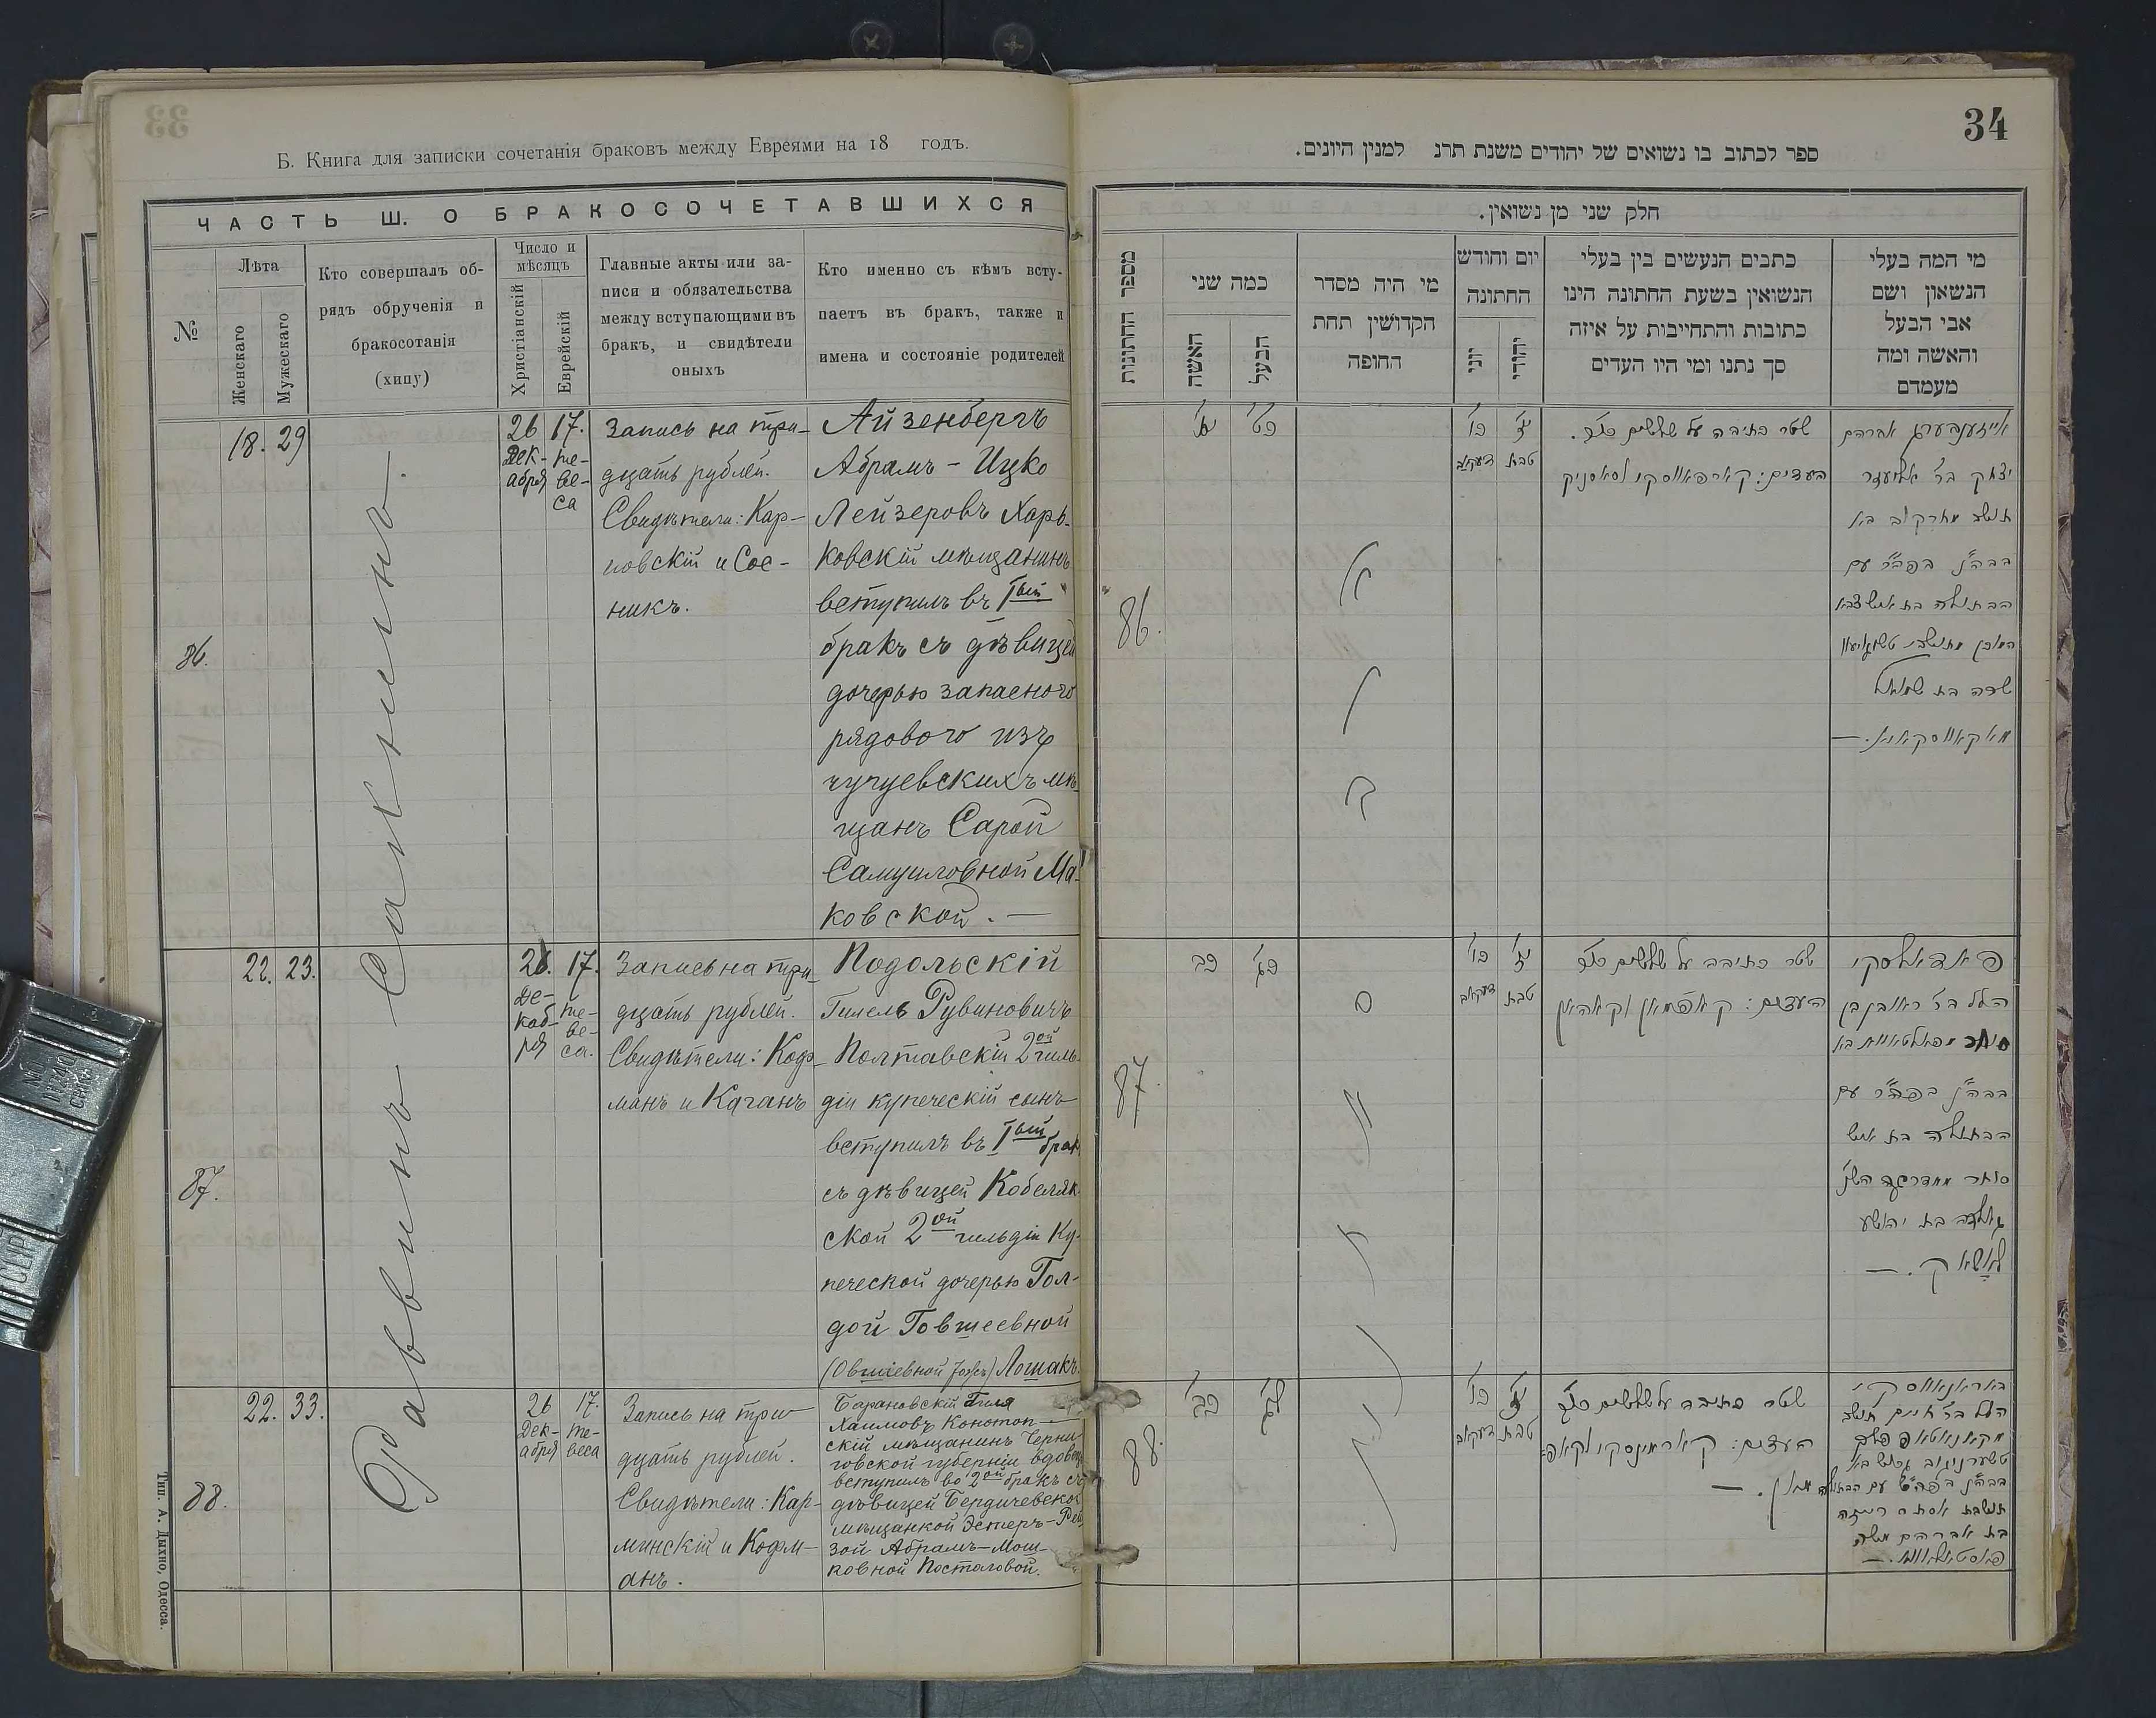 33
Б. Книга для записки сочетанія браковъ между Евреями на 18 годъ.
ЧАСТЬ Ш. О БРАКОСОЧЕТАВШИХСЯ
№
Лѣта
Женскаго
Мужескаго
Кто совершалъ об-
рядъ обрученія и
бракосотанія
(хипу)
Число и
мѣсяцъ
Христіанскій
Еврейскій
Главные акты или за-
писи и обязательства
между вступающими въ
бракъ, и свидѣтели
оныхъ
Кто именно съ кѣмъ всту-
паетъ въ бракъ, также и
имена и состояніе родителей
Раввинъ
86.
18. 29
26 17.
Дек- те-
абря ве-
са
Запись на три-
дцать рублей.
Свидѣтели: Кар-
повскій и Сос-
никъ.
Айзенбергъ
Абрамъ - Ицко
Лейзеровъ Харь-
ковскій мѣщанинъ
вступилъ въ 1ый
бракъ съ дѣвицей
дочерью запаснаго
рядового изъ
чугуевскихъ мѣ-
щанъ Сарой
Самуиловной Ма-
ковской. —
87.
22. 23.
26. 17.
Де- те-
каб- ве-
ря са.
Запись на три-
дцать рублей.
Свидѣтели: Коф-
манъ и Каганъ
Подольскій
Гилель Рувиновичъ
Полтавскій 2ой гиль-
діи купеческій сынъ
вступилъ въ 1ый бракъ
съ дѣвицей Кобеляк-
ской 2ой гильдіи Ку-
печеской дочерью Гол-
дой Говшеевной
(Овшіевной тожъ) Лошакъ.
88.
22. 33.
26 17.
Дек- те-
абря веса
Запись на три-
дцать рублей.
Свидѣтели: Кар-
минскій и Кофм-
анъ.
Барановскій Гиля
Хаимовъ Конотоп-
скій мѣщанинъ Черни-
говской губерніи вдовецъ
вступилъ во 2ой бракъ съ
дѣвицей Бердичевской
мѣщанкой Эстеръ-Рей-
зой Абрамъ-Мош-
ковной Посталовой.
Тип. А. Дыхно, Одесса.
34
ספר לכתוב בו נשואים של יהודים משנת תרנ למנין היונים.
חלק שני מן נשואין.
מספר החתונות
כמה שני
האשה
הבעל
מי היה מסדר
הקדושין תחת
החופה
יום וחודש
החתונה
יוני
יהודי
כתבים הנעשים בין בעלי
הנשואין בשעת החתונה הינו
כתובות והתחייבות על איזה
סך נתנו ומי היו העדים
מי המה בעלי
הנשואן ושם
אבי הבעל
והאשה ומה
מעמדם
86.
כו'
טבת
שטר כתיבה על שלשים
העדים: קארפאווסקי וסאסניק
אייזענבערג אברהם
יצחק בר אליעזר
תושב
הבתולה בת
שרה בת שמואל
מאקאווסקאיא. —
87.
כב
כג'
כו'
טבת
שטר כתיבה על שלשים
העדים: קאפמאן וקאהאן
פאדאלסקי
הלל בר ראובן בן
סוחר
הבתולה בת איש
סוחר ממדרגה השני
גאלדה בת יהושע
לאשאק. —
88.
כב'
לג'
כו'
טבת
שטר כתיבה על שלשים
העדים: קארמינסקי וקאפ-
מאן. —
באראנאווסקי
הלל בר חיים תושב
תושבת אסתר רייזה
בת אברהם משה